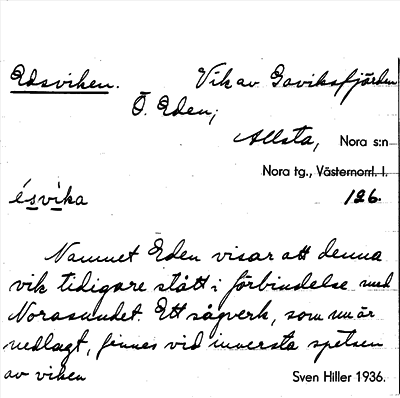 Edsviken. Vik av Gaviksfjärden
Ö. Eden;
Allsta, Nora s:n
Nora tg., Västernorrl. l.
é̱svi̱ka 126.
Namnet Eden visar att denna
vik tidigare stått i förbindelse med
Norasundet. Ett sågverk, som nu är
nedlagt, finnes vid innersta spetsen
av viken
Sven Hiller 1936.